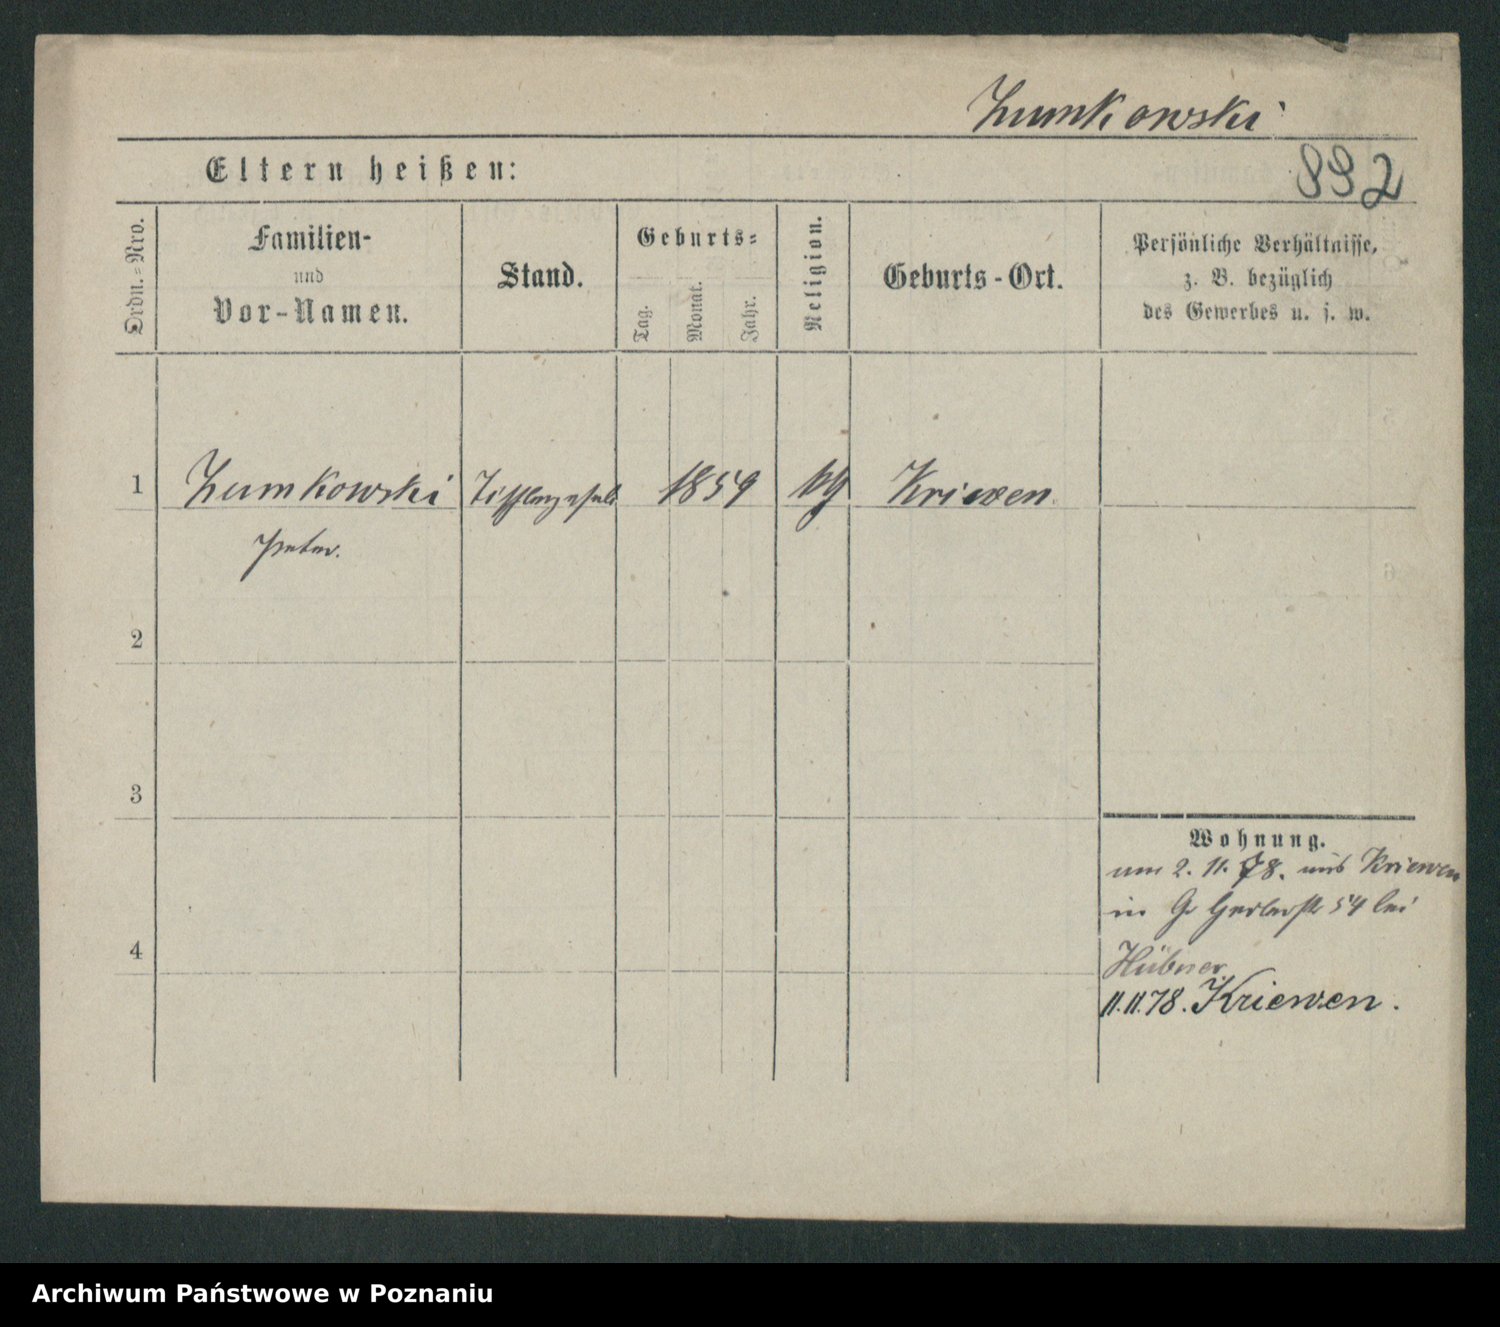 Zumkowski
892
Eltern heißen:
Ordn.=Nro.
Familien-
und
Vor-Namen.
Stand.
Geburts=
Tag.
Monat.
Jahr.
Religion.
Geburts-Ort.
Persönliche Verhältnisse,
z. B. bezüglich
des Gewerbes u. s. w.
1 Zumkowski 1859 Kriewen
Peter.
2
3
Wohnung.
um 2. 11. 78. aus Kriewen
in Gr Gerberstr 54 bei
4
Hübner
11.11.78. Kriewen.
Archiwum Państwowe w Poznaniu